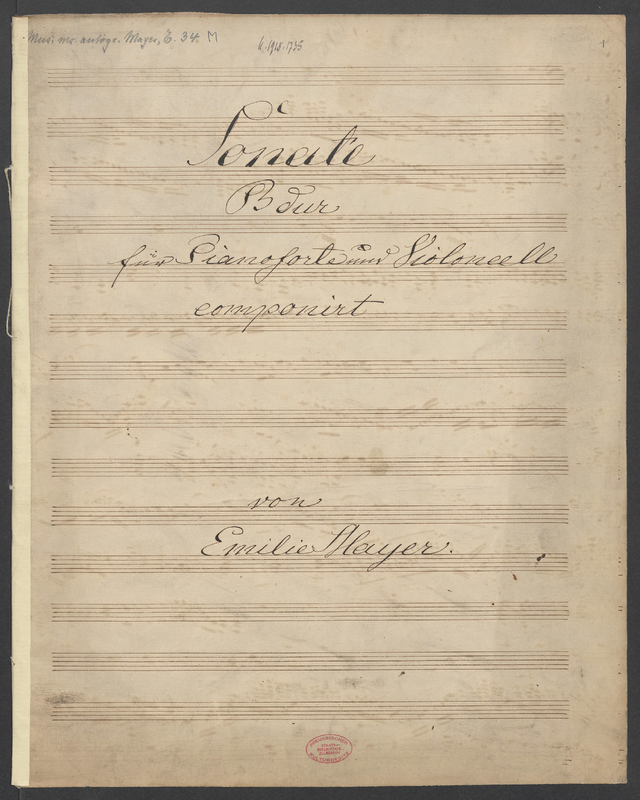 Mus. ms. autogr. Mayer, E. 34 M
1
Sonate
B dur
für Pianoforte und Violoncell
componirt
von
Emilie Mayer.